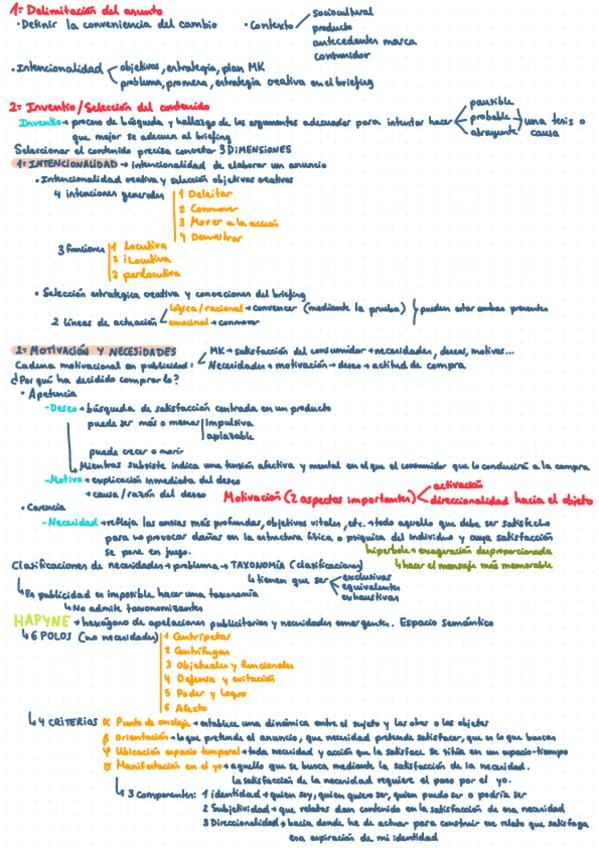 1= Delimitación del asunto
· Definir la conveniencia del cambio · Contexto sociocultural
producto
antecedentes marca
consumidor
· Intencionalidad objetivos, estrategia, plan MK
problema, promesa, estrategia creativa en el briefing
2= Inventio/Selección del contenido
Inventio → proceso de búsqueda y hallazgo de los argumentos adecuados para intentar hacer pausible
probable
atrayente
una tesis o causa
que mejor se adecuen al briefing
Seleccionar el contenido precisa conectar 3 DIMENSIONES
1= INTENCIONALIDAD → intencionalidad de elaborar un anuncio
· Intencionalidad creativa y selección objetivos creativos
4 intenciones generales 1 Deleitar
2 Conmover
3 Mover a la acción
4 Demostrar
3 Funciones 1 Locutiva
2 iLocutiva
3 perlocutiva
· Selección estrategica creativa y concreciones del briefing
2 líneas de actuación lógica/racional → convencer (mediante la prueba)
emocional → conmover
pueden estar ambas presentes
2= MOTIVACIÓN Y NECESIDADES
Cadena motivacional en publicidad: MK → satisfacción del consumidor → necesidades, deseos, motivos...
Necesidades → motivación → deseo → actitud de compra
¿Por qué ha decidido comprarlo?
· Apetencia
- Deseo → búsqueda de satisfacción centrada en un producto
puede ser más o menos impulsiva
aplazable
puede crecer o morir
Mientras subsiste indica una tensión afectiva y mental en el que el consumidor que lo conducirá a la compra
- Motivo → explicación inmediata del deseo
→ causa/razón del deseo
Motivación (2 aspectos importantes) activación
direccionalidad hacia el objeto
· Carencia
- Necesidad → refleja las ansias más profundas, objetivos vitales, etc. → todo aquello que debe ser satisfecho
para no provocar daños en la estructura física o psíquica del individuo y cuya satisfacción
se pone en juego.
hiperbole → exageración desproporcionada
↳ hacer el mensaje más memorable
Clasificaciones de necesidades → problema → TAXONOMÍA (clasificaciones)
↳ tienen que ser exclusivas
equivalentes
exhaustivas
↳ En publicidad es imposible hacer una taxonomía
↳ No admite taxonomizantes
HAPYNE → hexágono de apelaciones publicitarias y necesidades emergentes. Espacio Semántico
↳ 6 POLOS (no necesidades) 1 Centrípetas
2 Centrífugas
3 Objetuales y funcionales
4 Defensa y evitación
5 Poder y Logro
6 Afecto
↳ 4 CRITERIOS α Punto de anclaje → establece una dinámica entre el sujeto y los otros o los objetos
β orientación → lo que pretende el anuncio, que necesidad pretende satisfacer, que es lo que buscan
φ Ubicación espacio temporal → toda necesidad y acción que la satisface se sitúa en un espacio-tiempo
Manifestación en el yo → aquello que se busca mediante la satisfacción de la necesidad.
la satisfacción de la necesidad requiere el paso por el yo.
↳ 3 Componentes: 1 identidad → quien soy, quien quiero ser, quien puedo ser o podría ser
2 Subjetividad → que relatos dan contenido en la satisfacción de esa necesidad
3 Direccionalidad → hacia donde he de actuar para construir ese relato que satisfaga
esa aspiración de mi identidad